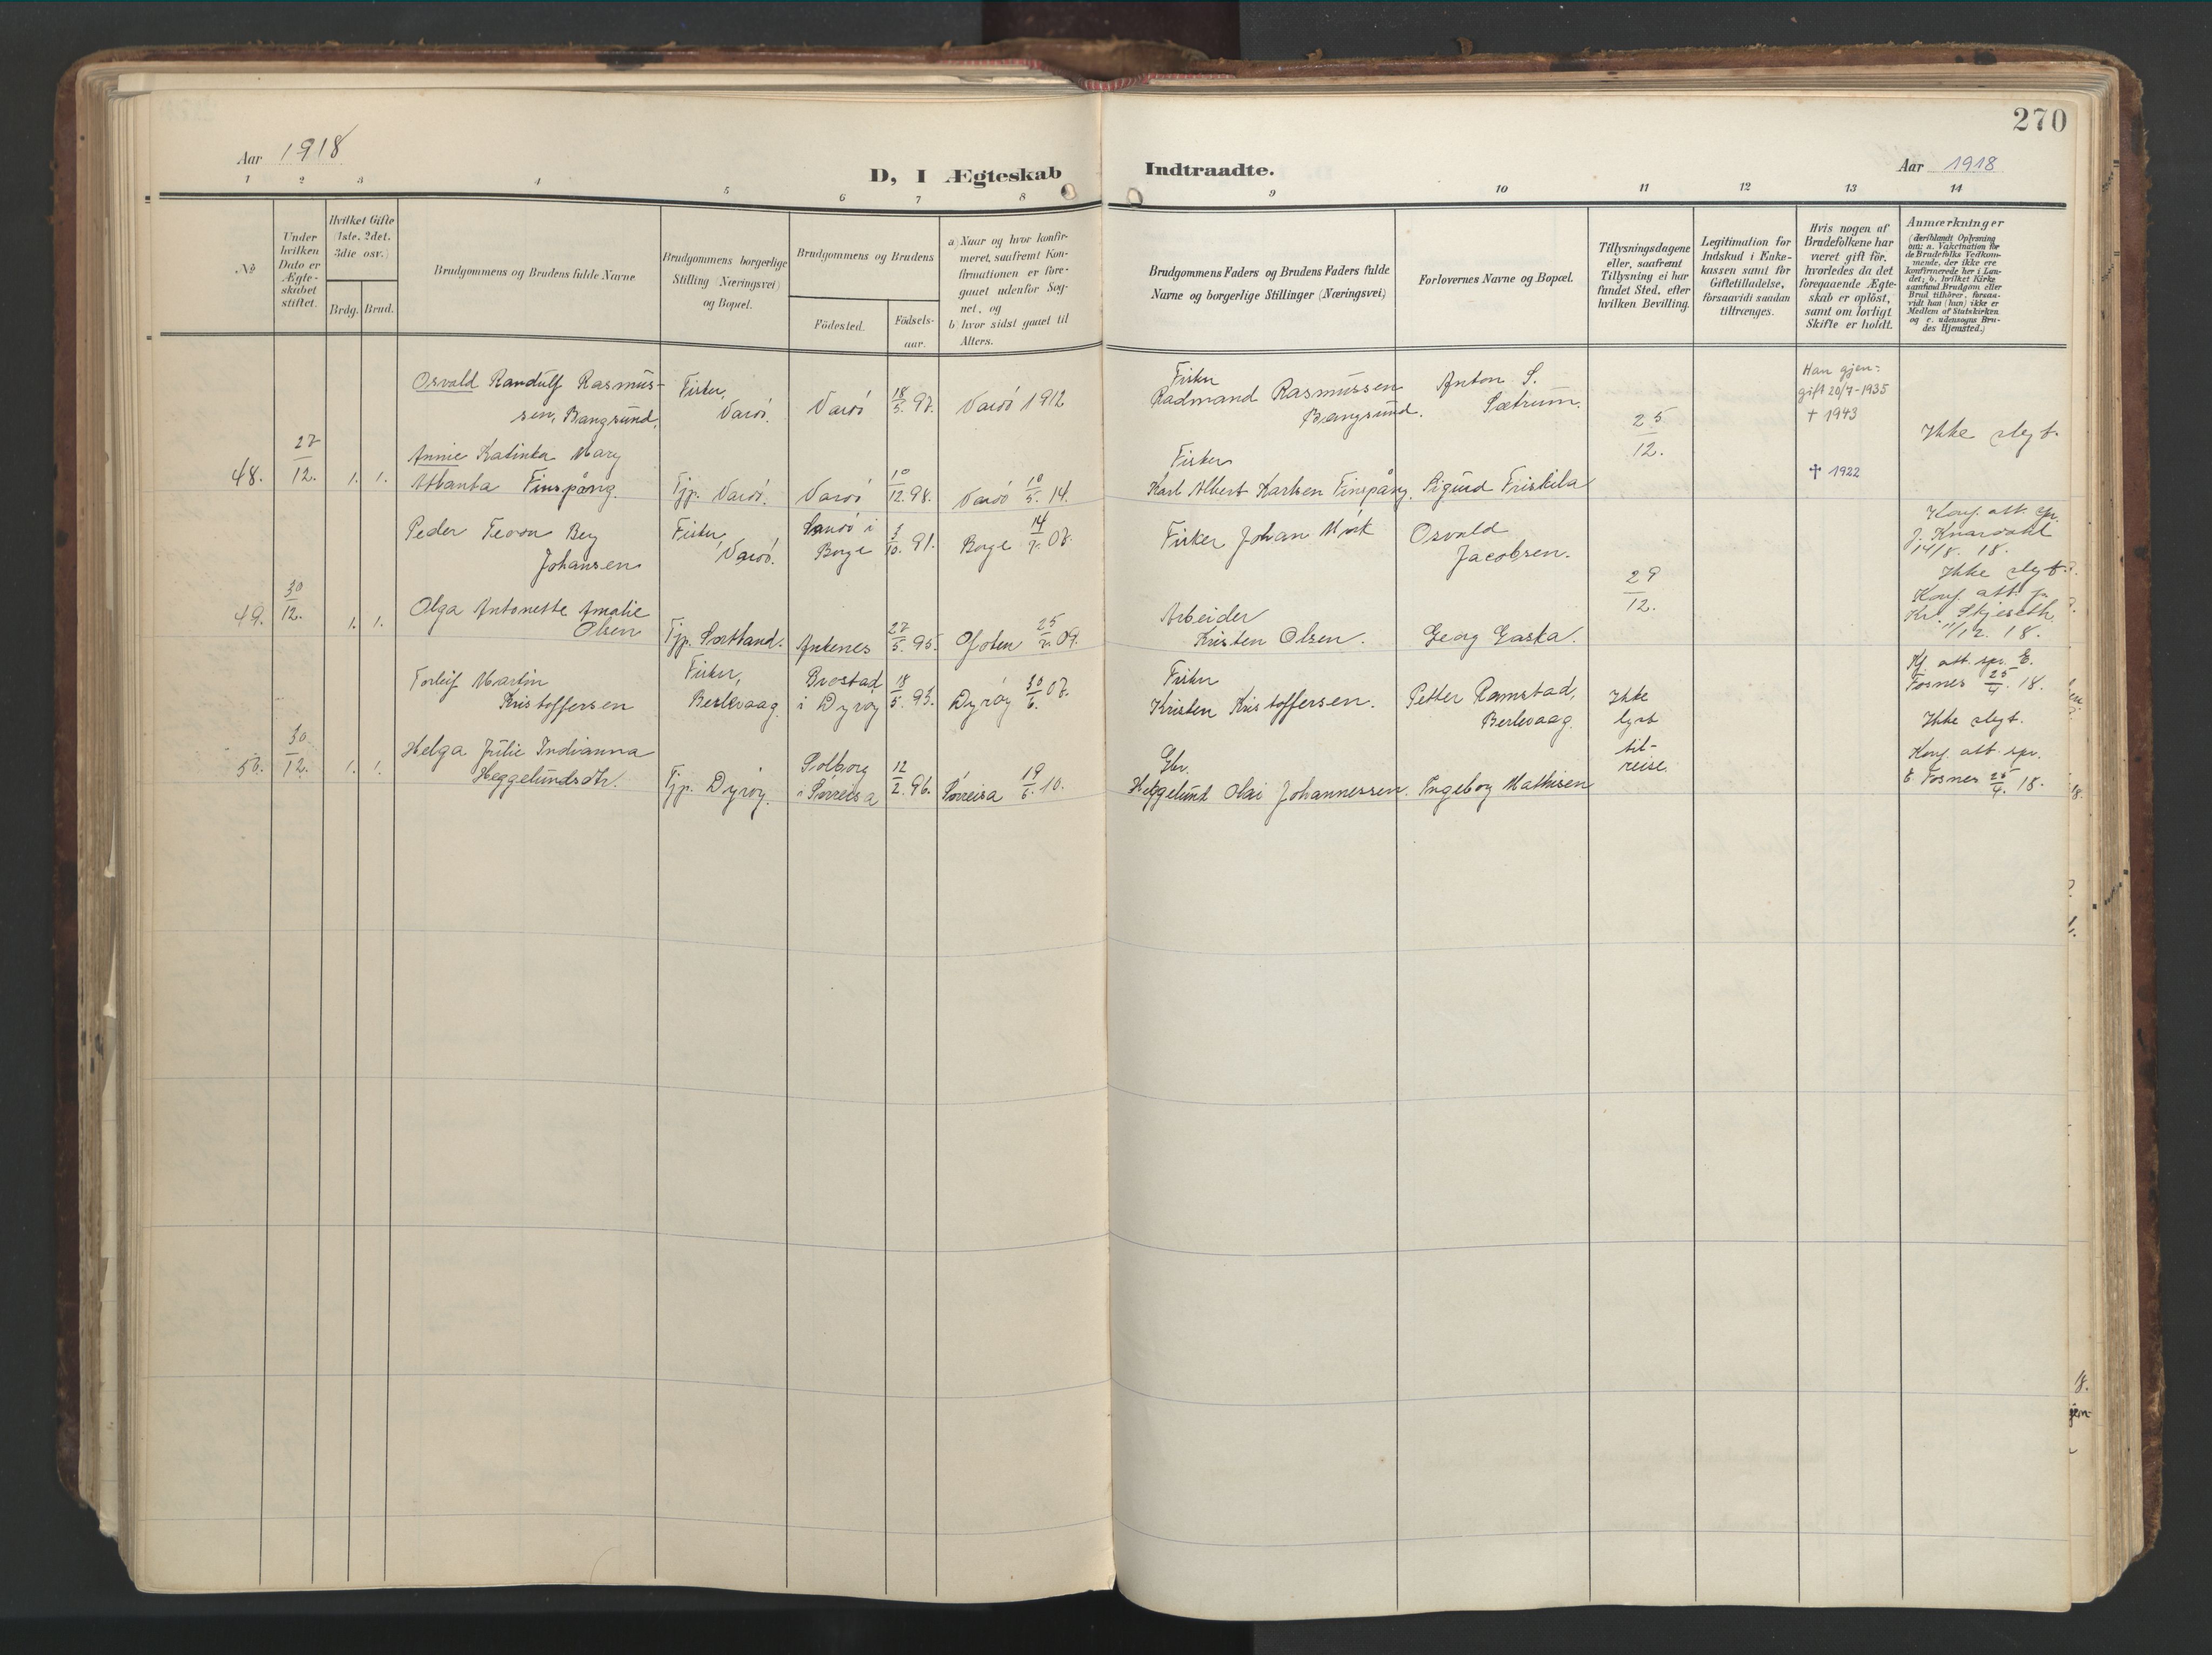 270
Aar 1918
D, I Ægteskab Indtraadte.
Aar 1918
1 2 3 4 5 6 7 8 9 10 11 12 13 14
No
Under
hvilken
Dato er
Ægte-
skabet
stiftet.
Hvilket Gifte
(1ste. 2det.
3die osv.)
Brdg. Brud.
Brudgommens og Brudens fulde Navne
Brudgommens borgerlige
Stilling (Næringsvei)
og Bopæl.
Brudgommens og Brudens
Födested.
Födsels-
aar.
a) Naar og hvor konfir-
meret, saafremt Kon-
firmationen er fore-
gaaet udenfor Sog-
net, og
b) hvor sidst gaaet til
Alters.
Brudgommens Faders og Brudens Faders fulde
Navne og borgerlige Stillinger (Næringsvei)
Forlovernes Navne og Bopæl.
Tillysningsdagene
eller, saafremt
Tillysning ei har
fundet Sted, efter
hvilken Bevilling.
Legitimation for
Indskud i Enke-
kassen samt for
Giftetilladelse,
forsaavidt saadan
tiltrænges.
Hvis nogen af
Brudefolkene har
været gift för,
hvorledes da det
foregaaende Ægte-
skab er oplöst,
samt om lovligt
Skifte er holdt.
Anmærkninger
(deriblandt Oplysning
om: a. Vakcination for
de Brudefolks Vedkom-
mende, der ikke ere
konfirmerede her i Lan-
det; b. hvilket Kirke
samfund Brudgom eller
Brud tilhörer, forsaa-
vidt han (hun) ikke er
Medlem af Statskirken
og c. udensogns Bru-
des Hjemsted.)
48. 27/12. 1. 1.
Osvald Randulf Rasmus-
sen, Bangsund.
Fisker,
Vardö.
Vardö 18/5. 97. Vardö 1912
Fisker
Radmand Rasmussen
Bangsund.
Anton S.
Sætrum.
25/12.
Han gjen-
gift 20/7-1935
† 1943
Ikke slegt.
Annie Katinka Mary
Atlanta Finspång.
Tjp. Vardö. Vardö 10/12. 98. Vardö 10/5. 14.
Fisker
Karl Albert Karlsen Finspång. Sigurd Friskila
† 1922
49. 30/12. 1. 1.
Peder Teoon Berg
Johansen
Fisker,
Vardö.
Sandö i
Borge 3/10. 91. Borge 14/7. 07.
Fisker Johan Mörk
Osvald
Jacobsen.
29/12.
Konf. att. spr.
J. Knardahl
14/8. 18.
Ikke slegt.
Olga Antonette Amalie
Olsen
Tjp. Sortland. Ankenes 27/5. 95. Ofoten 25/7. 09.
Arbeider
Kristen Olsen. Georg Gaska.
Konf. att. spr.
Kr. Skjeseth
11/12. 18.
50. 30/12. 1. 1.
Torleif Martin
Kristoffersen
Fisker,
Berlevaag.
Brostad
i Dyröy 18/5. 93. Dyröy 30/6. 07.
Fisker
Kristen Kristoffersen.
Petter Ramstad,
Berlevaag.
Ikke
lyst
til-
reise.
Kf. att. spr. E.
Fosnes 25/4. 18.
Ikke slegt.
Helga Julie Indianna
Heggelundsdtr.
Tjp. Dyröy.
Solborg
i Sørreisa 12/2. 96. Sørreisa 19/6. 10.
Gbr.
Heggelund Olai Johannessen. Ingeborg Mathisen
Konf. att. spr.
E. Fosnes 25/4. 18.